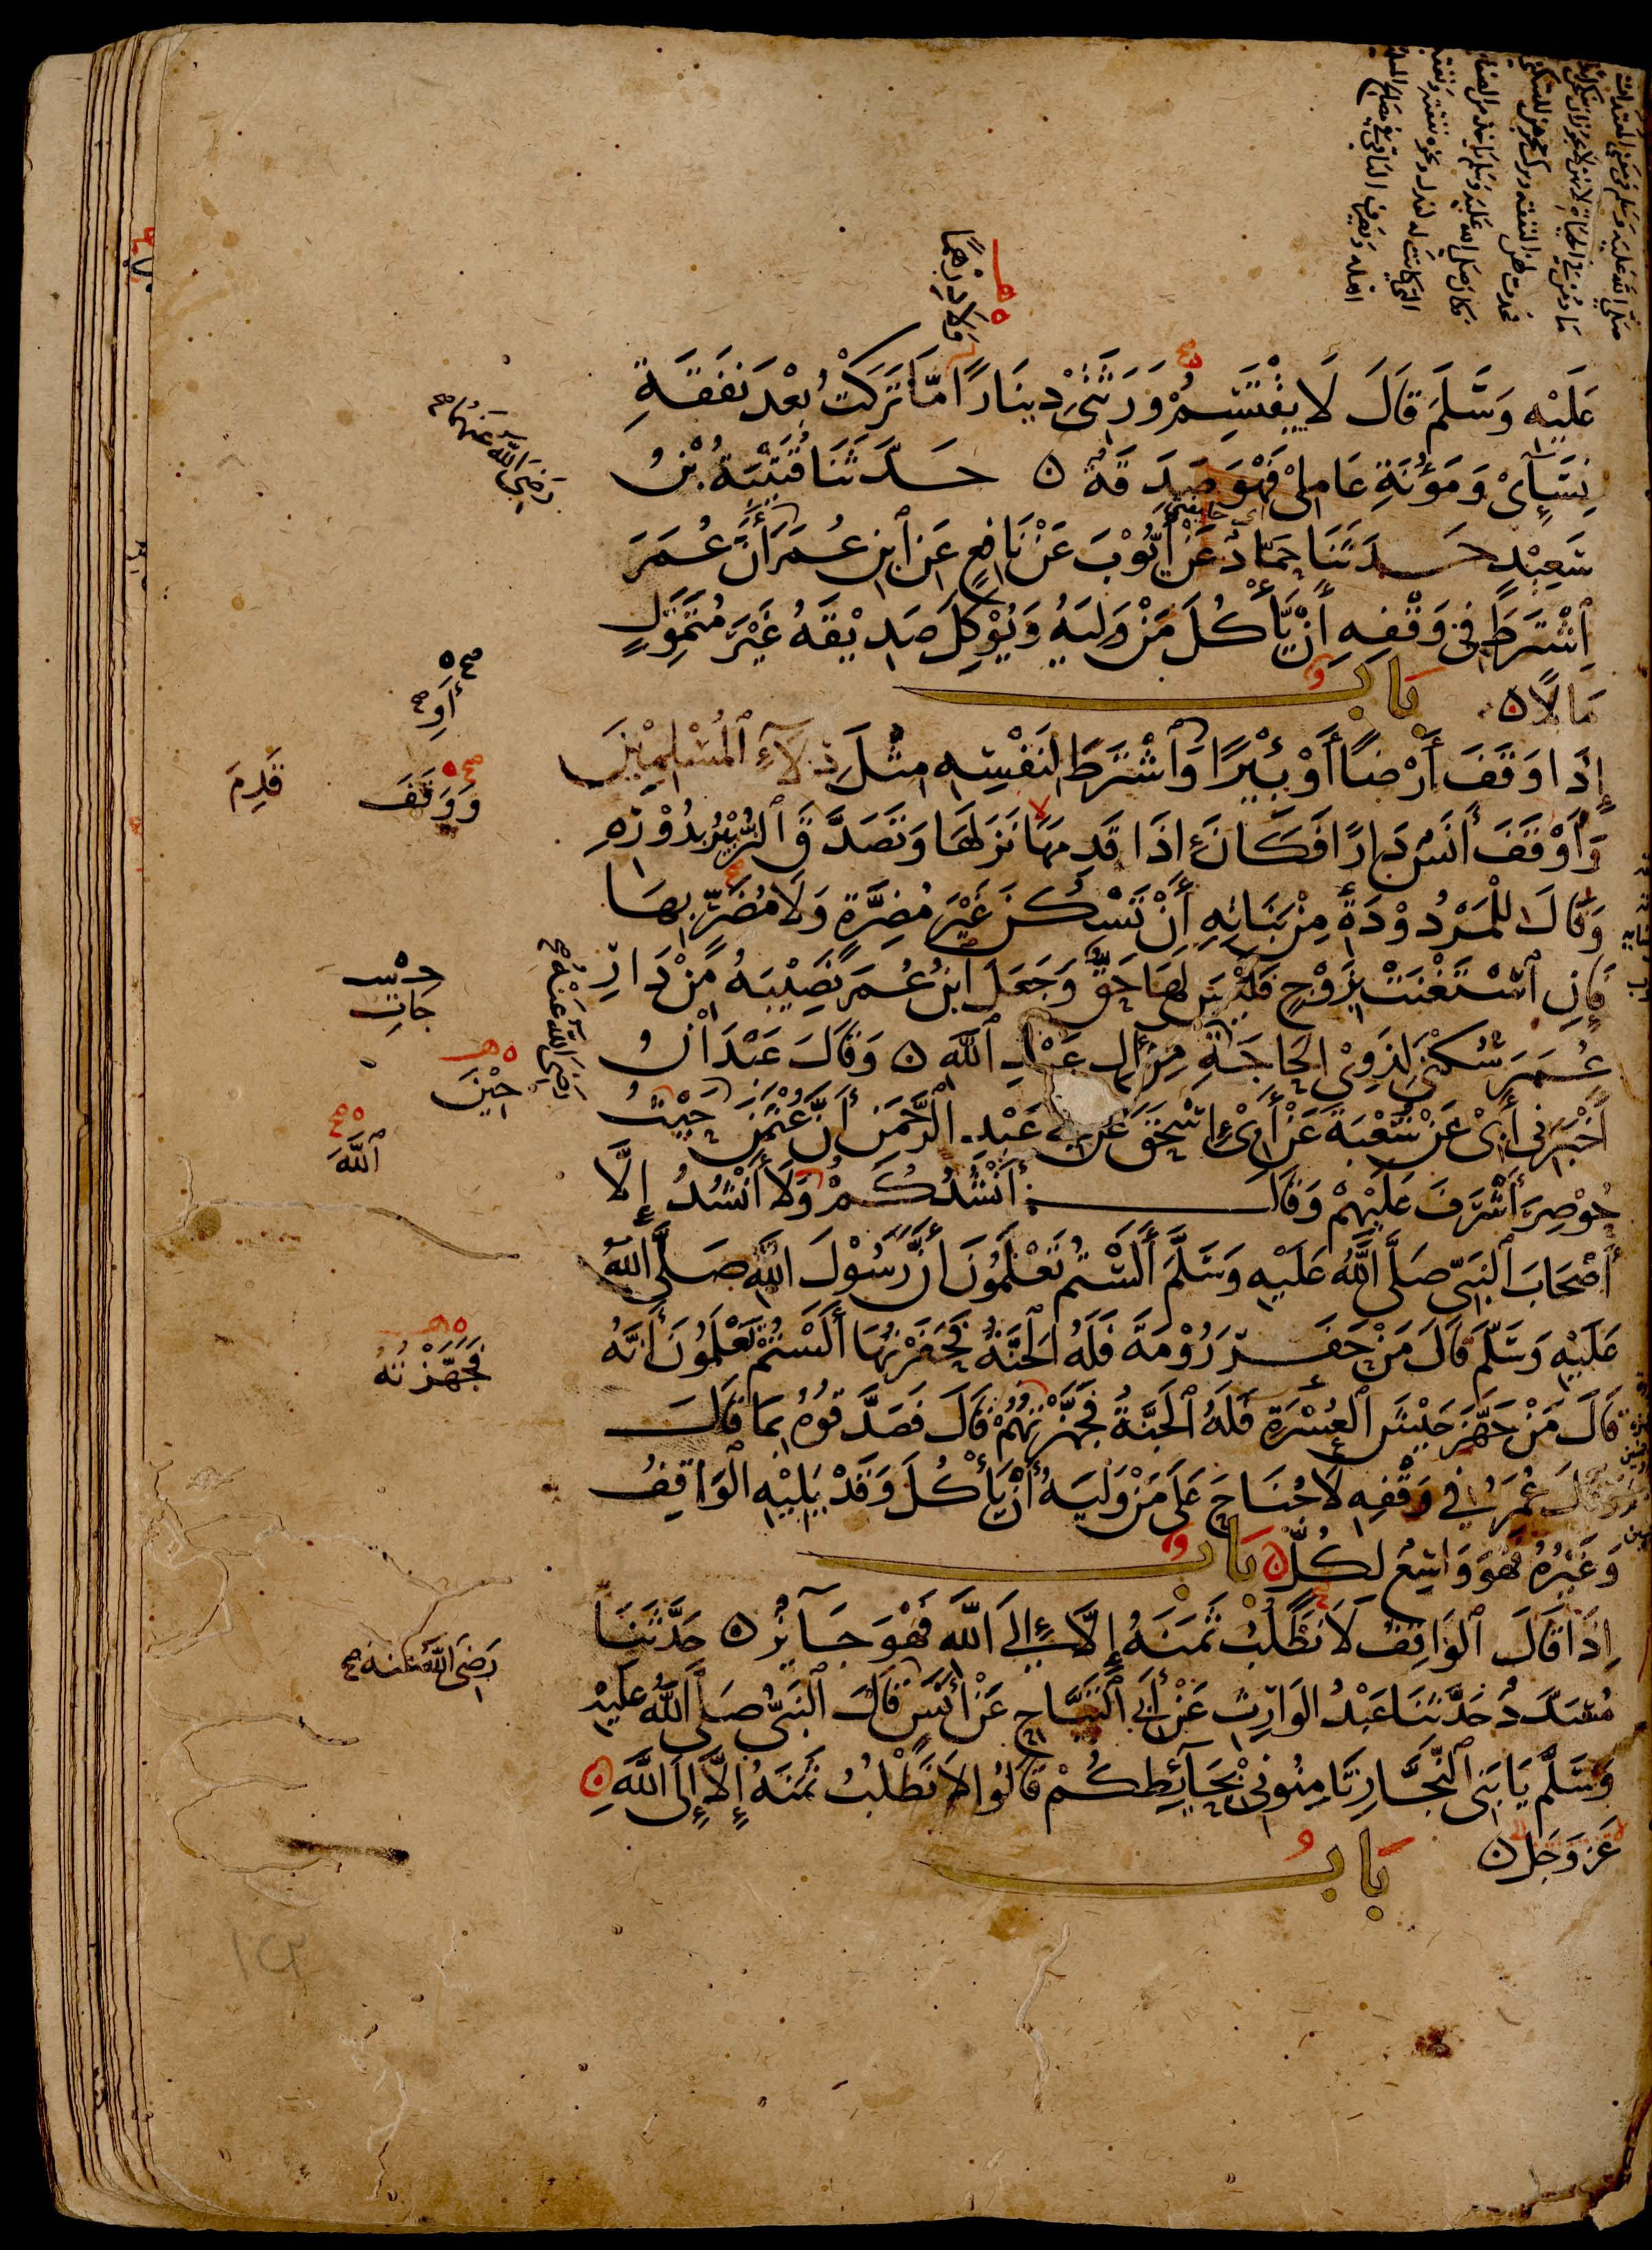 وَلَا دِرْهَمًا
عَلَيْهِ وَسَلَّمَ قَالَ لَا يَقْتَسِمُ وَرَثَتِي دِينَارًا مَا تَرَكْتُ بَعْدَ نَفَقَةِ
نِسَائِي وَمَؤُنَةِ عَامِلِي فَهْوَ صَدَقَةٌ ۞ حَدَّثَنَا قُتَيْبَةُ بْنُ
رَضِيَ اللَّهُ عَنْهُمَا
سَعِيدٍ حَدَّثَنَا حَمَّادٌ عَنْ أَيُّوبَ عَنْ نَافِعٍ عَنِ ابْنِ عُمَرَ أَنَّ عُمَرَ
اشْتَرَطَ فِي وَقْفِهِ أَنْ يَأْكُلَ مَنْ وَلِيَهُ وَيُوكِلَ صَدِيقَهُ غَيْرَ مُتَمَوِّلٍ
مَالًا ۞ بَابٌ
أَوِ
إِذَا وَقَفَ أَرْضًا أَوْ بِئْرًا وَاشْتَرَطَ لِنَفْسِهِ مِثْلَ دِلَاءِ الْمُسْلِمِينَ
وَوَقَفَ
قَدِمَ
وَأَوْقَفَ أَنَسٌ دَارًا فَكَانَ إِذَا قَدِمَهَا نَزَلَهَا وَتَصَدَّقَ الزُّبَيْرُ بِدُورِهِ
وَقَالَ لِلْمَرْدُودَةِ مِنْ بَنَاتِهِ أَنْ تَسْكُنَ غَيْرَ مُضِرَّةٍ وَلَا مُضَرٍّ بِهَا
فَإِنِ اسْتَغْنَتْ بِزَوْجٍ فَلَيْسَ لَهَا حَقٌّ وَجَعَلَ ابْنُ عُمَرَ نَصِيبَهُ مِنْ دَارِ
عُمَرَ سُكْنَى لِذَوِي الْحَاجَةِ مِنْ آلِ عَبْدِ اللَّهِ ۞ وَقَالَ عَبْدَانُ
رَضِيَ اللَّهُ عَنْهُ
حِينَ
أَخْبَرَنِي أَبِي عَنْ شُعْبَةَ عَنْ أَبِي إِسْحَقَ عَنْ أَبِي عَبْدِ الرَّحْمَنِ أَنَّ عُثْمَنَ حَيْثُ
اللَّهَ
حُوصِرَ أَشْرَفَ عَلَيْهِمْ وَقَالَ أَنْشُدُكُمْ وَلَا أَنْشُدُ إِلَّا
أَصْحَابَ النَّبِيِّ صَلَّى اللَّهُ عَلَيْهِ وَسَلَّمَ أَلَسْتُمْ تَعْلَمُونَ أَنَّ رَسُولَ اللَّهِ صَلَّى اللَّهُ
عَلَيْهِ وَسَلَّمَ قَالَ مَنْ حَفَرَ رُومَةَ فَلَهُ الْجَنَّةُ فَحَفَرْتُهَا أَلَسْتُمْ تَعْلَمُونَ أَنَّهُ
فَجَهَّزْتُهُ
قَالَ مَنْ جَهَّزَ جَيْشَ الْعُسْرَةِ فَلَهُ الْجَنَّةُ فَجَهَّزْتُهُمْ قَالَ فَصَدَّقُوهُ بِمَا قَالَ
وَقَالَ عُمَرُ فِي وَقْفِهِ لَا جُنَاحَ عَلَى مَنْ وَلِيَهُ أَنْ يَأْكُلَ وَقَدْ يَلِيهِ الْوَاقِفُ
وَغَيْرُهُ فَهُوَ وَاسِعٌ لِكُلٍّ ۞ بَابٌ
إِذَا قَالَ الْوَاقِفُ لَا نَطْلُبُ ثَمَنَهُ إِلَّا إِلَى اللَّهِ فَهْوَ جَائِزٌ ۞ حَدَّثَنَا
رَضِيَ اللَّهُ عَنْهُ
مُسَدَّدٌ حَدَّثَنَا عَبْدُ الْوَارِثِ عَنْ أَبِي التَّيَّاحِ عَنْ أَنَسٍ قَالَ النَّبِيُّ صَلَّى اللَّهُ عَلَيْهِ
وَسَلَّمَ يَا بَنِي النَّجَّارِ ثَامِنُونِي بِحَائِطِكُمْ قَالُوا لَا نَطْلُبُ ثَمَنَهُ إِلَّا إِلَى اللَّهِ ۞
عَزَّ وَجَلَّ ۞ بَابُ